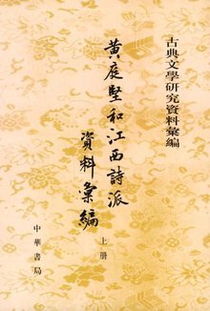 古典文學研究資料彙編
黃庭堅和江西詩派
資料彙編
上册
中華書局